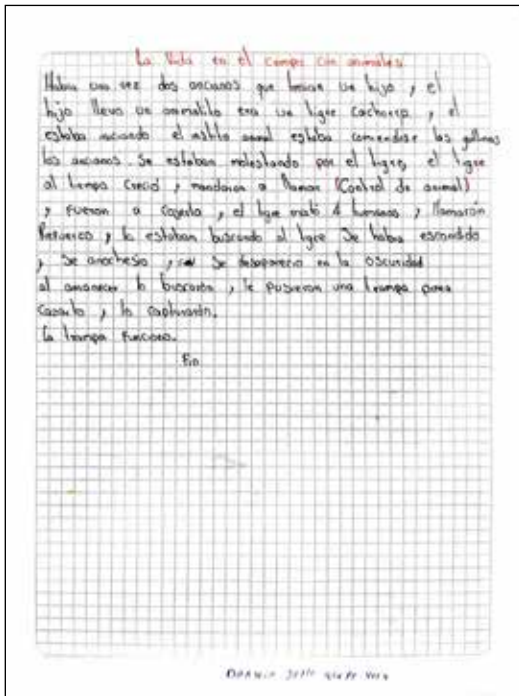 La Vida en el campo con animales
Habia una vez dos ancianos que tenian un hijo, y el
hijo llevo un animalito era un tigre cachorro, y el
estaba el animal estaba comiendose las gallinas
los ancianos. Se estaban molestando por el tigre, el tigre
al tiempo crecio, y mandaron a llamar (Control de animal)
y fueron a cogerlo, y el tigre mató 4 humanos, y llamarón
Refuerzo, y lo estaban buscando al tigre Se habia escondido
y Se anochesio, y Se desaparecio en la oscuridad
al amanecer lo buscarón, y le pusieron una trampa para
Cazarlo, y lo capturarón.
La trampa Funciono.
Fin